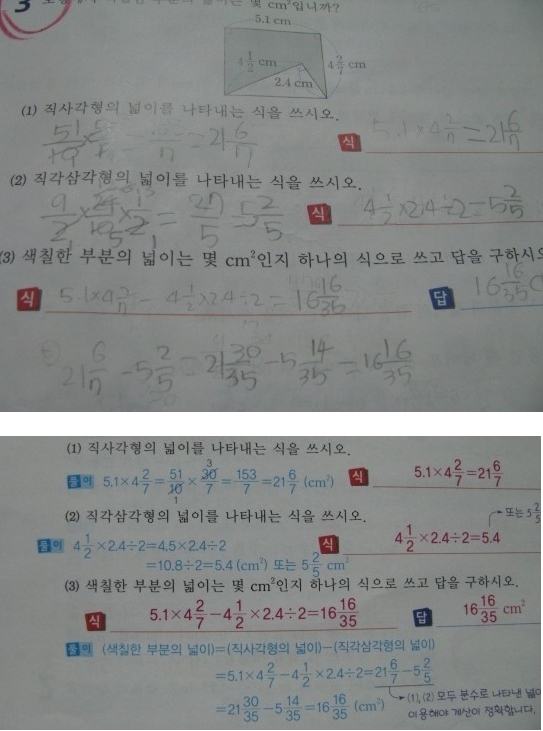 3
몇 cm²입니까?
5.1 cm
4 1/2 cm
4 2/7 cm
2.4 cm
(1) 직사각형의 넓이를 나타내는 식을 쓰시오.
= 21 6/7
식 5.1×4 2/7=21 6/7
(2) 직각삼각형의 넓이를 나타내는 식을 쓰시오.
9/2×24/10×1/2= 27/5 5 2/5
식 4 1/2×2.4÷2=5 2/5
(3) 색칠한 부분의 넓이는 몇 cm²인지 하나의 식으로 쓰고 답을 구하시오
식 5.1×4 2/7-4 1/2×2.4÷2=16 16/35
답 16 16/35
21 6/7-5 2/5=21 30/35-5 14/35=16 16/35
(1) 직사각형의 넓이를 나타내는 식을 쓰시오.
풀이 5.1×4 2/7=51/10×30/7=153/7=21 6/7 (cm²)
식 5.1×4 2/7=21 6/7
(2) 직각삼각형의 넓이를 나타내는 식을 쓰시오.
또는 5 2/5
풀이 4 1/2×2.4÷2=4.5×2.4÷2
식 4 1/2×2.4÷2=5.4
=10.8÷2=5.4 (cm²) 또는 5 2/5 cm²
(3) 색칠한 부분의 넓이는 몇 cm²인지 하나의 식으로 쓰고 답을 구하시오.
식 5.1×4 2/7-4 1/2×2.4÷2=16 16/35
답 16 16/35 cm²
풀이 (색칠한 부분의 넓이)=(직사각형의 넓이)-(직각삼각형의 넓이)
=5.1×4 2/7-4 1/2×2.4÷2=21 6/7-5 2/5
=21 30/35-5 14/35=16 16/35 (cm²)
(1), (2) 모두 분수로 나타낸 넓이
이용해야 계산이 정확합니다.